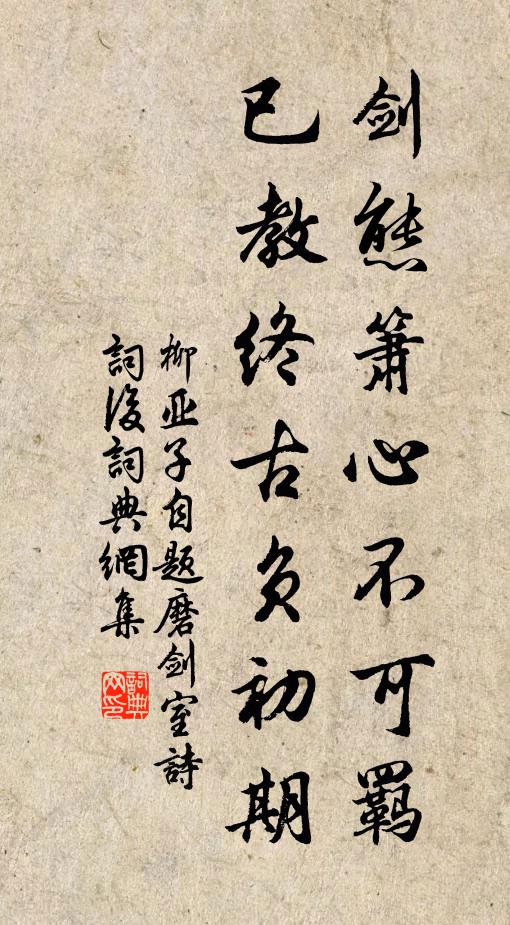 剑態箫心不可羈
已教终古负初期
柳亚子自题磨剑室詩
詞後詞典網集
詞典
网印